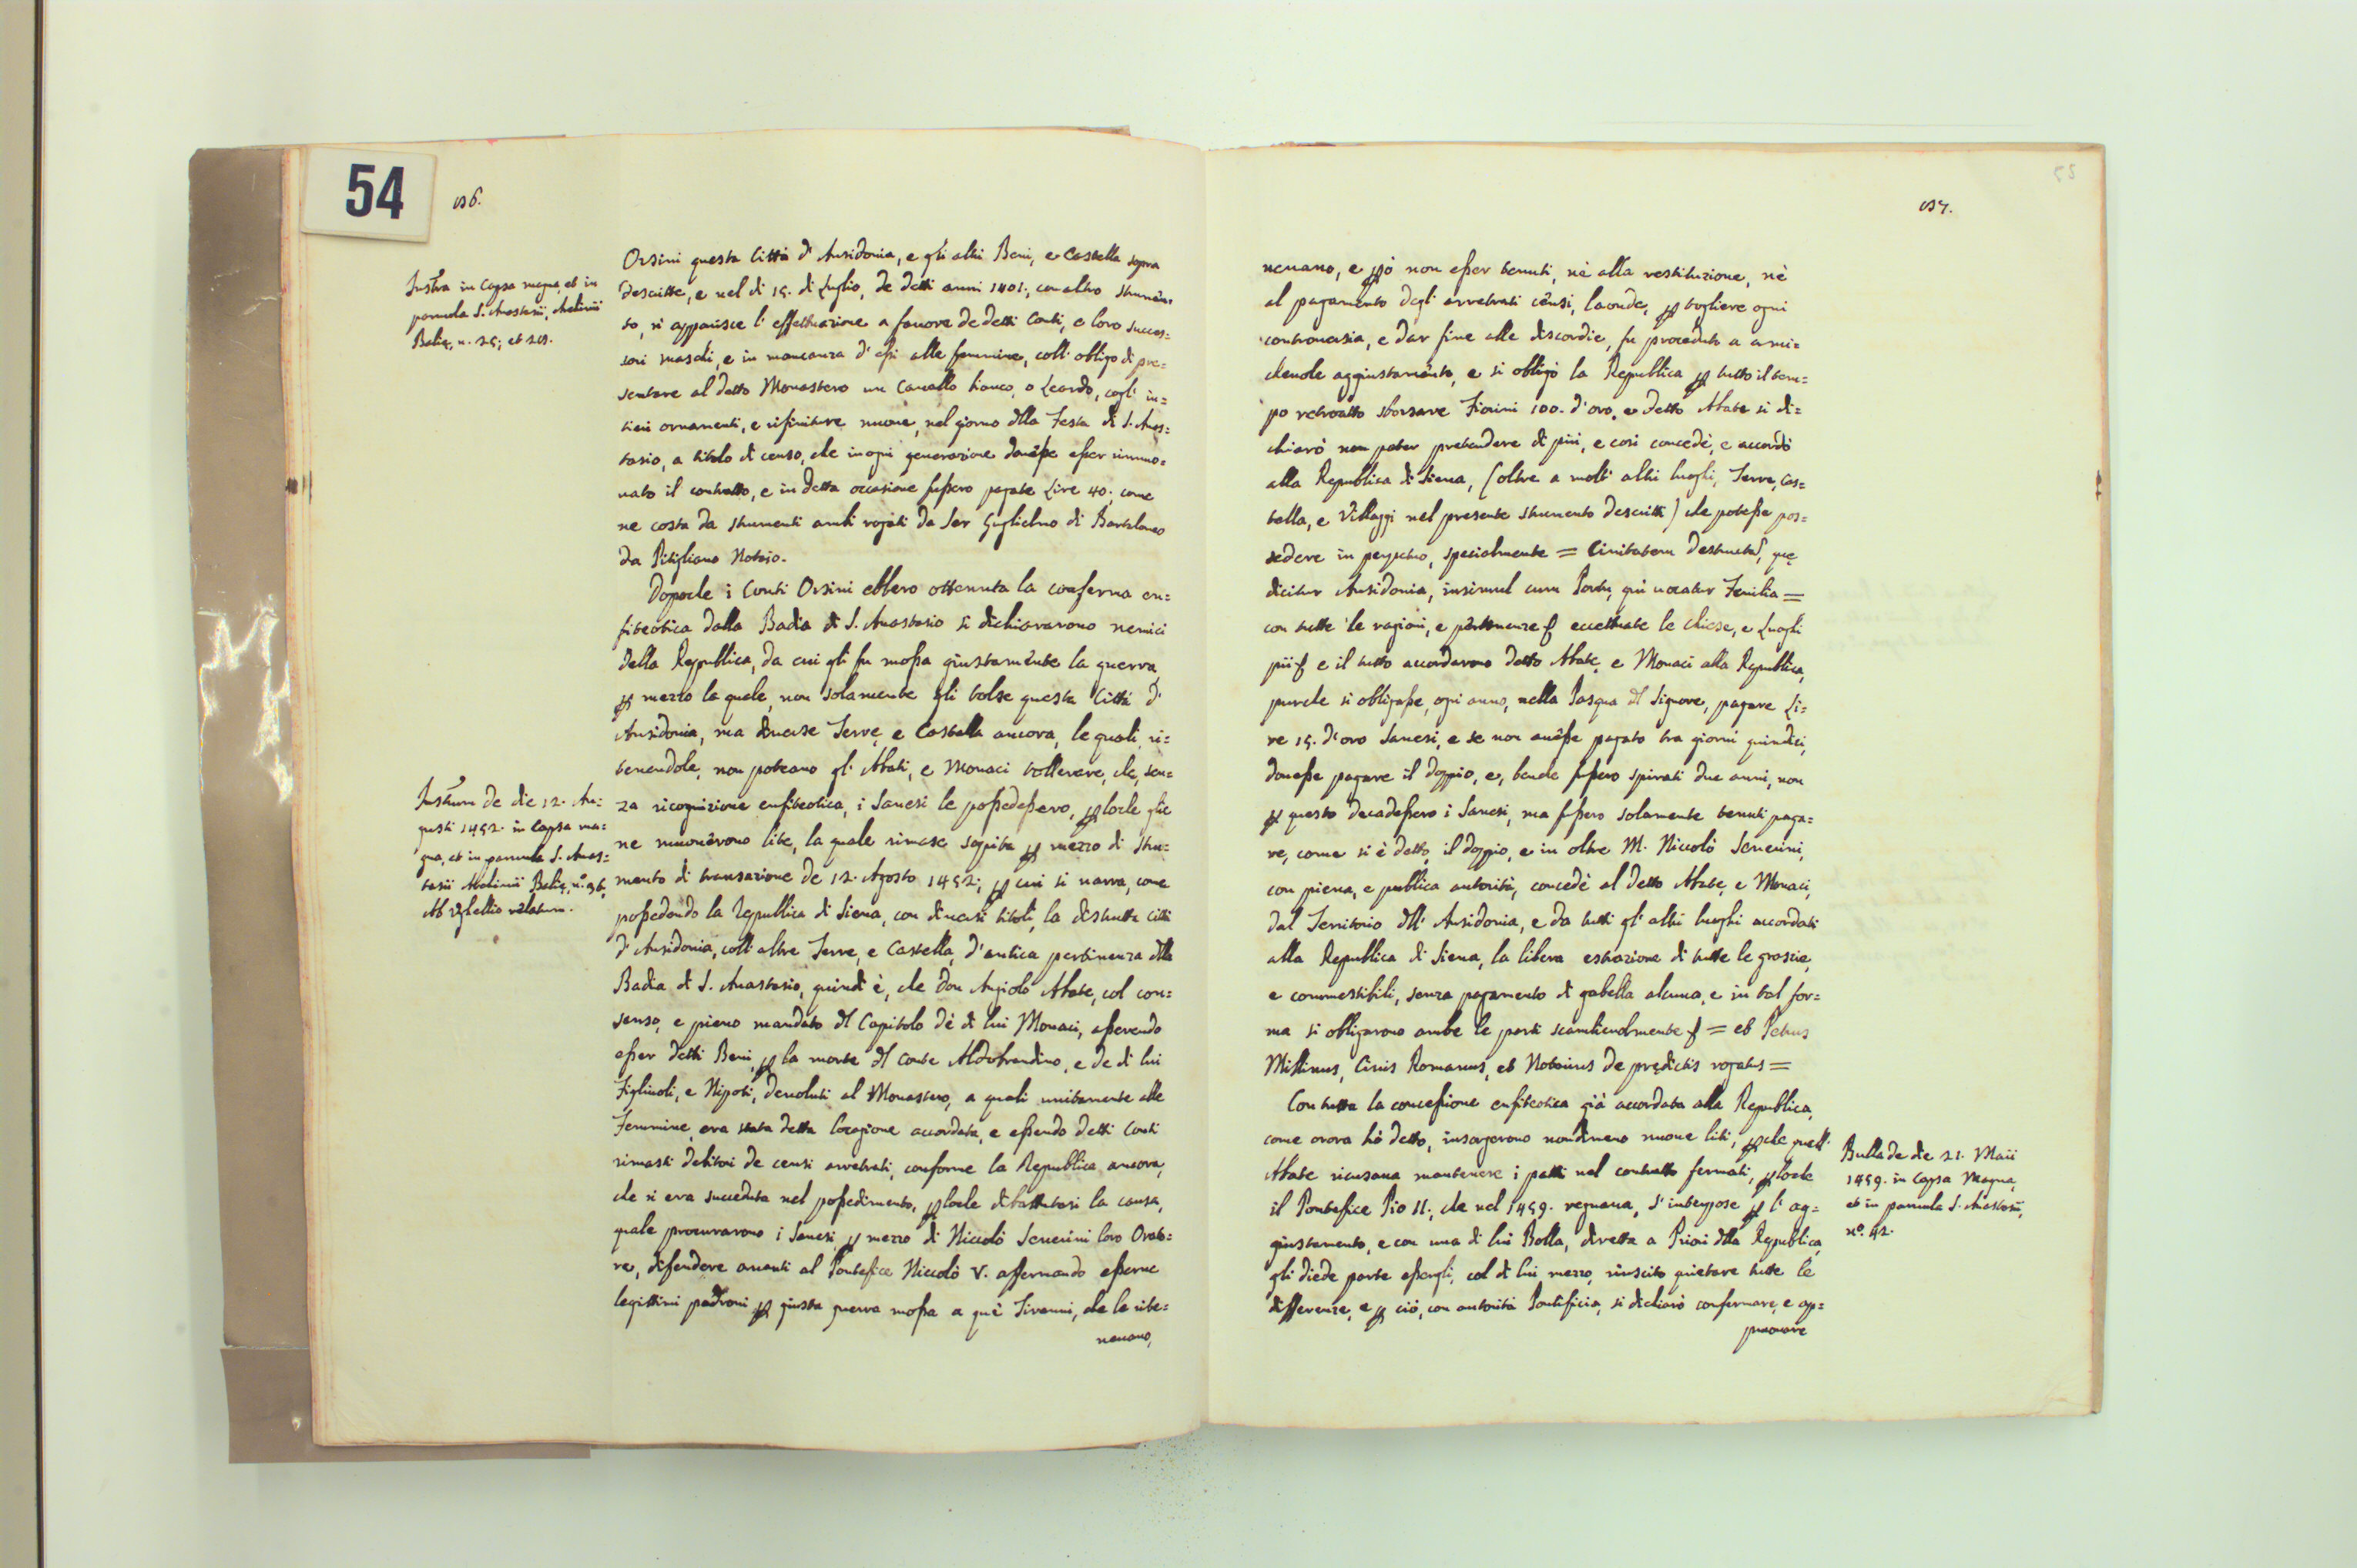 54
Orsini questa Città d' Ansidonia, e gli altri Beni, e Castella sopra
descritte, e nel di 15. di Luglio, de detti anni 1401., con altro Strumen=
to, si apparisce l' effettuazione a favore de detti Conti, e loro succes=
sori maschi, e in mancanza d' essi alle femmine, coll' obligo di pre=
sentare al detto Monastero un Cavallo bianco, o Leardo, cogl' in=
tieri ornamenti, e rifiniture nuove, nel giorno dlla Festa di S. Anas=
tasio, a titolo di censo, che in ogni generazione dovesse esser rinno=
vato il contratto, e in detta occasione fussero pagate Lire 40., come
ne costa da strumenti ambi rogati da Ser Guglielmo di Bartolomeo
da Pitigliano Notaio.
Dopoche i Conti Orsini ebbero ottenuta la conferma en=
fiteotica dalla Badia di S. Anastasio si dichiararono nemici
della Republica, da cui gli fu mossa giustamente la guerra,
p mezzo la quale, non solamente gli tolse questa Città d'
Ansidonia, ma diverse Terre, e Castella ancora, le quali, ri=
tenendole, non poteano gl' Abati, e Monaci tollerare, che, sen=
za ricognizione enfiteotica, i Sanesi le possedessero, ploche glie
ne muoverono lite, la quale rimase sopita p mezzo di Stru=
mento di transazione de 12. Agosto 1452., p cui si narra, come
possedendo la Republica di Siena, con diversi titoli, la distrutta città
d' Ansidonia, coll' altre Terre, e Castella, d' antica pertinenza dlla
Badia di S. Anastasio, quindi è, che Don Angiolo Abate, col con=
senso, e pieno mandato dl Capitolo dè di lui Monaci, asserendo
esser detti Beni, p la morte dl Conte Aldobrandino, e de di lui
Figliuoli, e Nipoti, devoluti al Monastero, a quali unitamente alle
Femmine, era stata detta locazione accordata, e essendo detti Conti
rimasti debitori de censi arretrati, conforme la Republica ancora,
che si era succeduta nel possedimento, ploche dibattutasi la causa,
quale procurarono i Sanesi, p mezzo di Niccolò Severini loro Orato=
re, difendere avanti al Pontefice Niccolò V. affermando esserne
legittimi padroni p giusta guerra mossa a què Tiranni, che le rite=
nevano,
Instra in Capsa magna, et in
parvula S. Anastasii,
Balia, n. 25; et
Instrum de die 12. Au=
gusti 1452. in Capsa ma=
gna, et in parvula S. Anas=
tasii
relatum.
55
nevano, e pò non esser tenuti, nè alla restituzione, nè
al pagamento degl' arretrati censi, laonde, p togliere ogni
controversia, e dar fine alle discordie, fu proceduto a ami=
chevole aggiustamento, e si obligò la Republica p tutto il tem=
po retroatto sborsare Fiorini 100. d' oro, e detto Abate si di=
chiarò non poter pretendere di più, e così concedè, e accordò
alla Republica di Siena, (oltre a molti altri luoghi, Terre, Cas=
tella, e Villaggi nel presente strumento descritti) che potesse pos=
sedere in perpetuo, specialmente = Civitatem destructã, quę
dicitur Ansidonia, insimul cum Portu, qui vocatur Fenilia =
con tutte le ragioni, e pertinenze eccettuate le chiese, e Luoghi
pii e il tutto accordarono detto Abate, e Monaci alla Republica,
purche si obligasse, ogni anno, nella Pasqua dl Signore, pagare Li=
re 15. d' oro Sanesi, e se non avesse pagato tra giorni quindici,
dovesse pagare il doppio, e, benche fussero spirati due anni, non
p questo decadessero i Sanesi, ma fussero solamente tenuti paga=
re, come si è detto, il doppio, e in oltre M. Niccolò Severini,
con piena, e publica autorità, concedè al detto Abate, e Monaci,
dal Territorio dll' Ansidonia, e da tutti gl' altri luoghi accordati
alla Republica di Siena, la libera estrazione di tutte le grascie,
e commestibili, senza pagamento di gabella alcuna, e in tal for=
ma si obligarono ambe le parti scambievolmente = et Petrus
Millinus, Civis Romanus, et Notarius de prędictis rogatus =
Con tutta la concessione enfiteotica già accordata alla Republica,
come orora hò detto, insorgerono nondimeno nuove liti, pche quell'
Abate ricusava mantenere i patti nel contratto fermati, ploche
il Pontefice Pio II., che nel 1459. regnava, s' interpose p l' ag=
giustamento, e con una di lui Bolla, diretta a Priori dlla Republica,
gli diede parte essergli, col di lui mezzo, riuscito quietare tutte le
differenze, e p ciò, con autorità Pontificia, si dichiarò confermare, e ap=
provare
Bulla de die 21. Maii
1459. in Capsa Magna,
et in parvula S. Anastasii,
nº. 42.